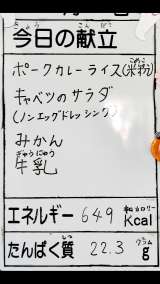 今日の献立
きょう こんだて
ポークカレーライス(米粉)
こめこ
キャベツのサラダ
(ノンエッグドレッシング)
みかん
ぎゅうにゅう
牛乳
エネルギー 649 Kcal
キロカロリー
たんぱく質 22.3 g
しつ
グラム